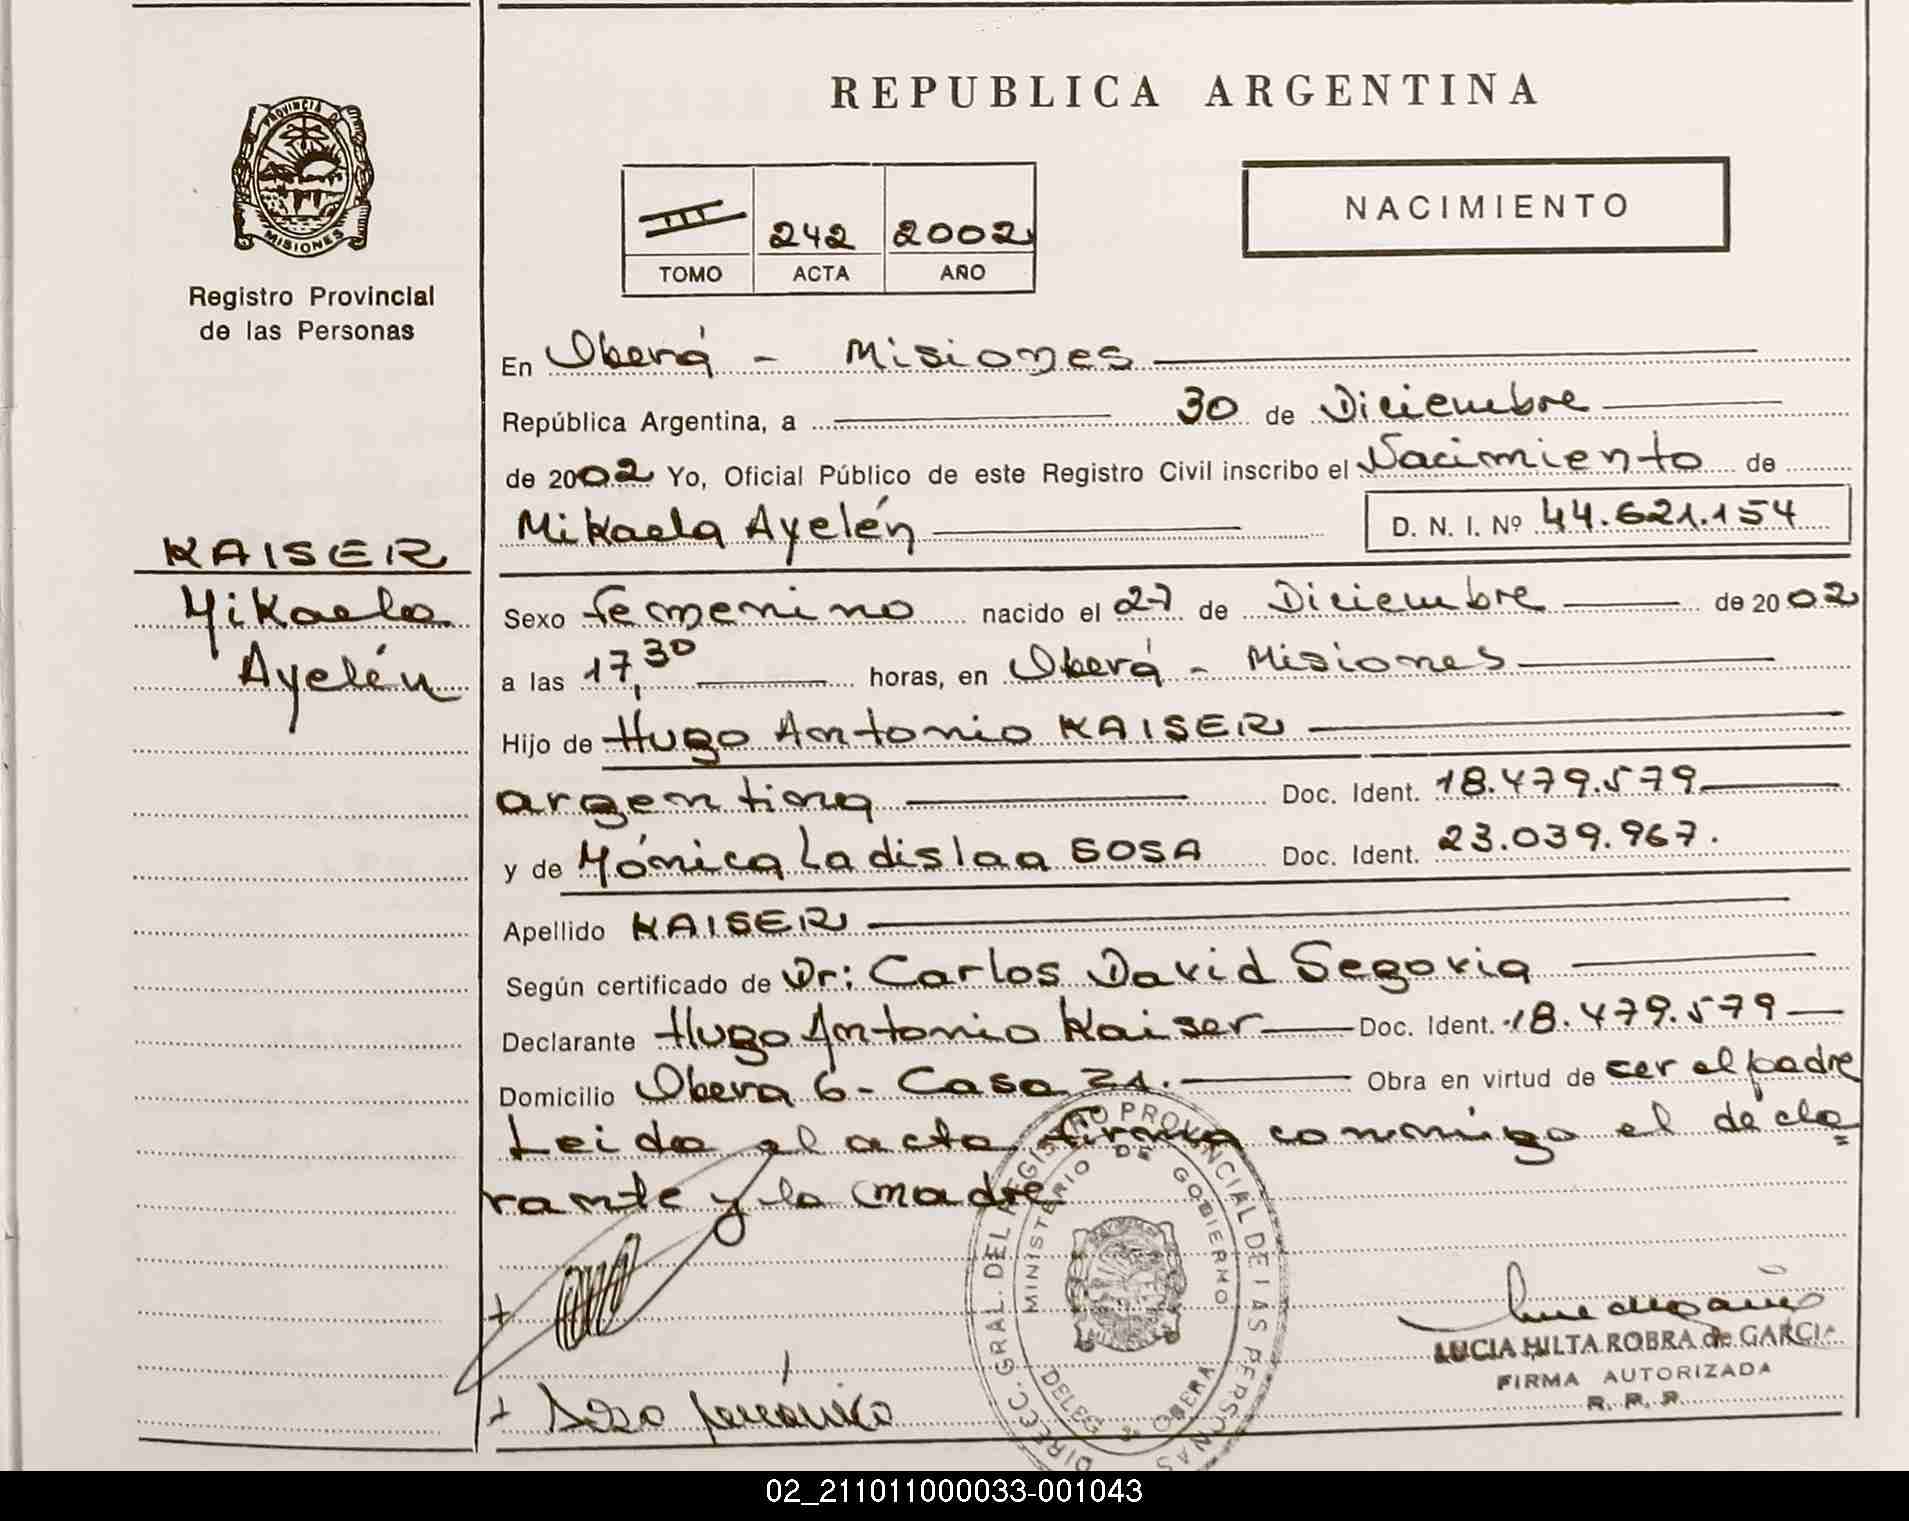 REPUBLICA ARGENTINA
PROVINCIA DE
MISIONES
Registro Provincial
de las Personas
III 242 2002
TOMO ACTA AÑO
NACIMIENTO
En Oberá - Misiones
República Argentina, a 30 de Diciembre
de 2002 Yo, Oficial Público de este Registro Civil inscribo el Nacimiento de
Mikaela Ayelén D. N. I. Nº 44.621.154
KAISER
Mikaela
Ayelén
Sexo femenino nacido el 27 de Diciembre de 2002
a las 17,30 horas, en Oberá - Misiones
Hijo de Hugo Antonio KAISER
argentina Doc. Ident. 18.479.579
y de Mónica Ladislaa SOSA Doc. Ident. 23.039.967.
Apellido KAISER
Según certificado de Dr: Carlos David Segovia
Declarante Hugo Antonio Kaiser Doc. Ident. 18.479.579
Domicilio Obera 6 - Casa 21. Obra en virtud de cer el padre
Leida el acta firma conmigo el decla=
rante y la madre
DIRECC. GRAL. DEL REGISTRO PROVINCIAL DE LAS PERSONAS
MINISTERIO DE GOBIERNO
DELEG OBERA
LUCIA HILTA ROBRA de GARCIA
FIRMA AUTORIZADA
R. P. P.
02_211011000033-001043